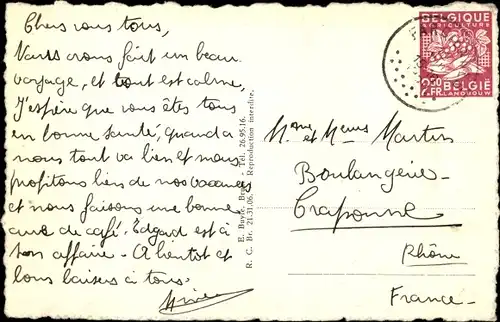 Chers vous tous,
Nous avons fait un beau
voyage, et tout est calme,
J'espère que vous êtes tous
en bonne santé, quand à
nous tout va bien et nous
profitons bien de nos vacances
et nous faisons une bonne
cure de café. Edgard est à
son affaire. A bientôt et
bons baisers à tous.
E. Buyle, Brux. - Tél. 26.95.16.
R. C. Br. 21.31.06. - Reproduction interdite.
BELGIQUE
AGRICULTURE
2.50
2.FR
BELGIE
LANDBOUW
Mme et Mrs Martin
Boulangerie -
Craponne
Rhône
France -